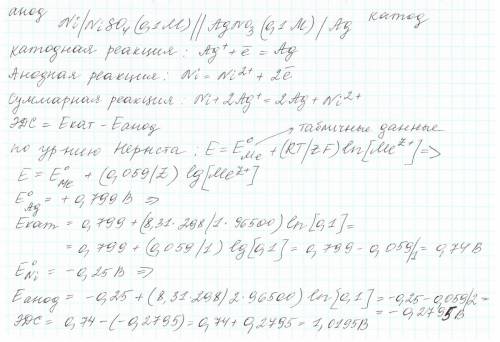 анод Ni/NiSO₄(0,1М)//AgNO₃(0,1М)/Ag катод
катодная реакция: Ag⁺+ē=Ag
Анодная реакция: Ni=Ni²⁺+2ē
Суммарная реакция: Ni+2Ag⁺=2Ag+Ni²⁺
ЭДС=Eкат-Eанод
табличные данные
по ур-нию Нернста: E=E⁰Me+(RT/zF)ln[Meᶻ⁺]=>
E=E⁰Me+(0,059/z)lg[Meᶻ⁺]
E⁰Ag=+0,799В =>
Eкат=0,799+(8,31·298/1·96500)ln[0,1]=
=0,799+(0,059/1)lg[0,1]=0,799-0,059/1=0,74В
E⁰Ni=-0,25В =>
Eанод=-0,25+(8,31·298)2·96500)ln[0,1]=-0,25-0,059/2=
=-0,2795В
ЭДС=0,74-(-0,2795)=0,74+0,2795=1,0195В